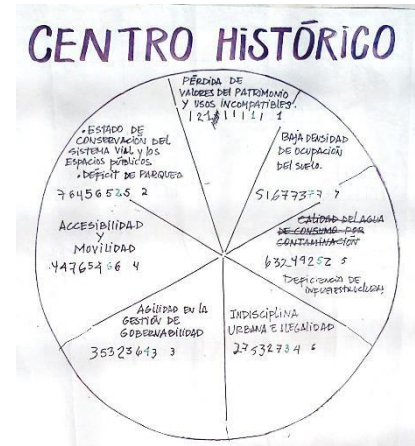 CENTRO HISTÓRICO
PÉRDIDA DE
VALORES DEL PATRIMONIO
Y USOS INCOMPATIBLES.
BAJA DENSIDAD
DE OCUPACIÓN
DEL SUELO.
51677377 7
CALIDAD DEL AGUA
DE CONSUMO POR
CONTAMINACIÓN
63249252 5
DEFICIENCIA DE
INFRAESTRUCTURA
INDISCIPLINA
URBANA E ILEGALIDAD
27532734 6
AGILIDAD EN LA
GESTIÓN DE
GOBERNABILIDAD
35323643 3
ACCESIBILIDAD
Y
MOVILIDAD
44765466 4
• ESTADO DE
CONSERVACIÓN DEL
SISTEMA VIAL Y LOS
ESPACIOS PÚBLICOS
• DÉFICIT DE PARQUEO
76456525 2